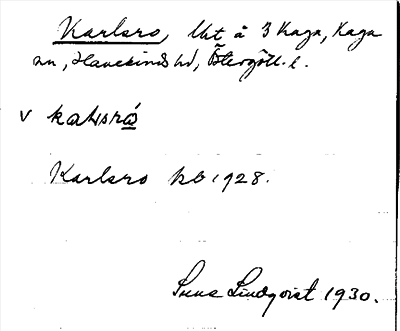 Karlsro, lht å 3 Kaga, Kaga
sn, Hanekinds hd, Östergötl. l.
v kaḷsró
Karlsro kb 1928.
Sune Lindqvist 1930.